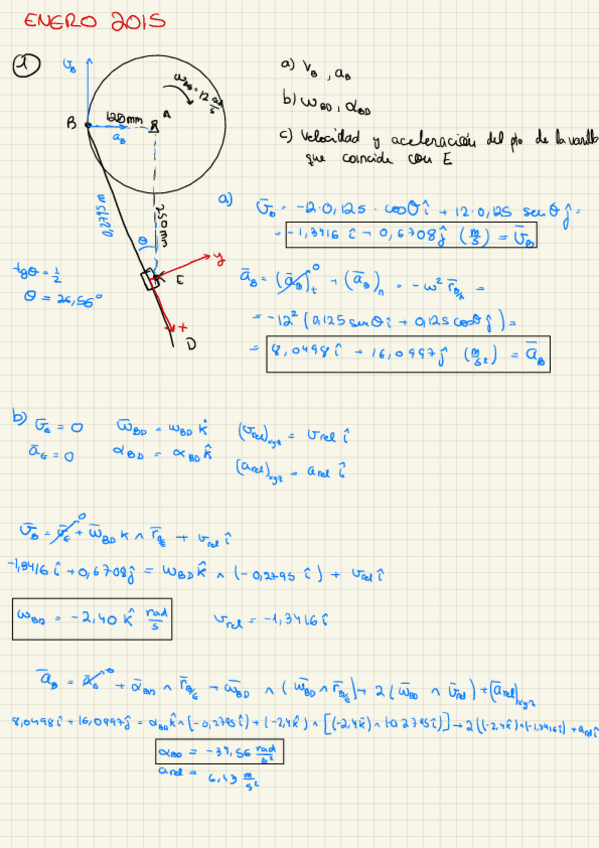 ENERO 2015
1
V_B
ω_AB = 12 rad/s
A
B
120mm
a_B
0,2795 m
250mm
θ
E
y
x
D
tgθ = 1/2
θ = 26,56°
a) V_B , a_B
b) ω_BD , α_BD
c) Velocidad y aceleración del pto de la varilla
que coincide con E
a) v̄_B = -12·0,125 · cosθ î + 12·0,125 senθ ĵ =
= -1,3416 î + 0,6708 ĵ (m/s) = v̄_B
ā_B = (ā_B)_t^0 + (ā_B)_n = -ω² r̄_B/A =
= -12² (0,125 senθ î + 0,125 cosθ ĵ) =
= 8,0498 î + 16,0997 ĵ (m/s²) = ā_B
b) v̄_E = 0 ω̄_BD = ω_BD k̂ (v̄_rel)_xyz = v_rel î
ā_E = 0 α_BD = α_BD k̂ (ā_rel)_xyz = a_rel î
v̄_B = v̄_E^0 + ω̄_BD k ∧ r̄_B/E + v_rel î
-1,3416 î + 0,6708 ĵ = ω_BD k̂ ∧ (-0,2795 î) + v_rel î
ω_BD = -2,40 k̂ rad/s v_rel = -1,3416 î
ā_B = ā_E^0 + ᾱ_BD ∧ r̄_B/E + ω̄_BD ∧ (ω̄_BD ∧ r̄_B/E) + 2 (ω̄_BD ∧ v̄_rel) + (ā_rel)_xyz
8,0498 î + 16,0997 ĵ = α_BD k̂ ∧ (-0,2795 î) + (-2,4 k̂) ∧ [(-2,4 k̂) ∧ (-0,2795 î)] + 2 ((-2,4 k̂) ∧ (-1,3416 î) + a_rel î
α_BD = -34,56 rad/s²
a_rel = 6,43 m/s²